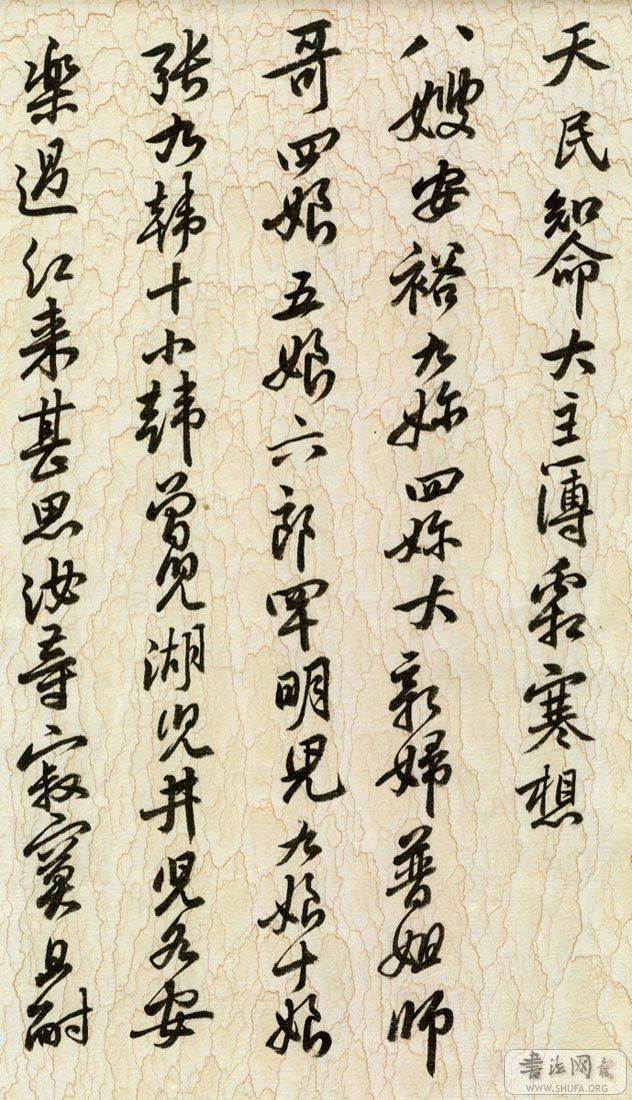 天民知命大主簿霜寒想
八嫂安裕九妳四妳大新婦普姐師
哥四娘五娘六郎四明児九娘十娘
張九韓十小韓曾児湖児井児各安
樂過江来甚思汝等寂寞且耐
書法网
WWW.SHUFA.ORG